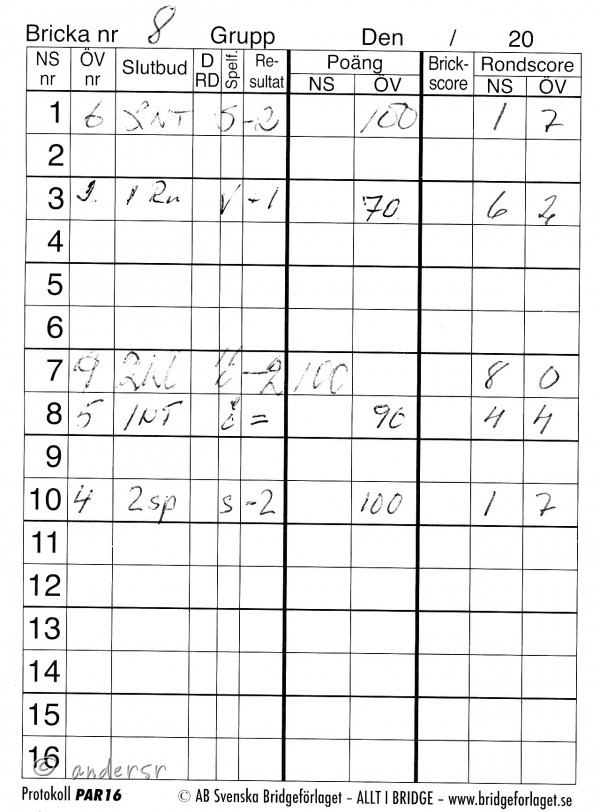 Bricka nr 8 Grupp Den / 20
NS nr ÖV nr Slutbud D RD Spelf. Re-sultat Poäng NS ÖV Brick-score Rondscore NS ÖV
1 6 NT S -2 100 1 7
2
3 1 Ru V -1 70 6 2
4
5
6
7 9 2hl -2 100 8 0
8 5 1NT ö = 90 4 4
9
10 4 2sp s -2 100 1 7
11
12
13
14
15
16
© andersr
Protokoll PAR16 © AB Svenska Bridgeförlaget – ALLT I BRIDGE – www.bridgeforlaget.se